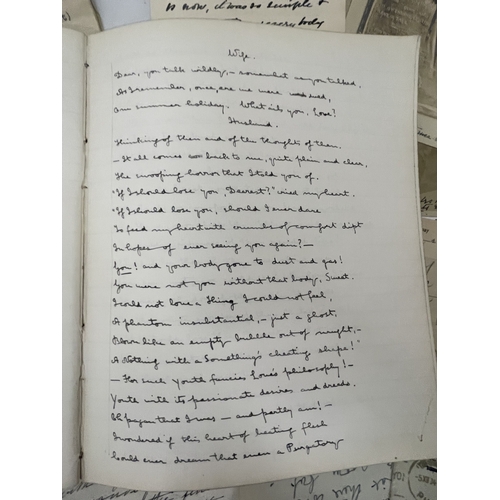 as now, it was so simple &
everybody
Wife.
Dear, you talk wildly, – somewhat as you talked.
As I remember, once, ere we were wed,
One summer holiday. What ails you, Love?
Husband.
Thinking of them and of the thoughts of them.
– It all comes back to me, quite plain and clear,
The swooping horror that I told you of.
"If I should lose you, Dearest?" cried my heart.
"If I should lose you, should I ever dare
To feed my heart with crumbs of comfort dipt
In hopes of ever seeing you again? –
You! and your body gone to dust and gas!
You were not you without that body, Sweet.
I could not love a Thing I could not feel,
A phantom insubstantial, – just a ghost,
Blown like an empty bubble out of nought, –
A Nothing with a Something's cheating shape!"
– For such Youth fancies Love's philosophy! –
Youth with its passionate desires and dreads.
Oh pagan that I was – and partly am! –
I wondered if this heart of beating flesh
Could ever dream that even a Purgatory